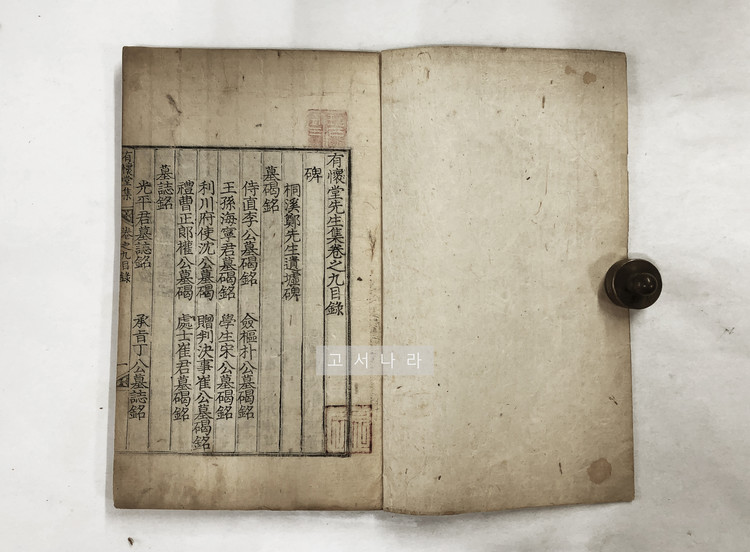 有懷堂先生集卷之九目錄
碑
桐溪鄭先生遺墟碑
墓碣銘
侍直李公墓碣銘 僉樞朴公墓碣銘
王孫海寧君墓碣銘 學生宋公墓碣銘
利川府使沈公墓碣 贈判決事崔公墓碣銘
禮曹正郎權公墓碣 處士崔君墓碣銘
墓誌銘
光平君墓誌銘 承旨丁公墓誌銘
有懷堂集 卷之九目錄 一
고서나라